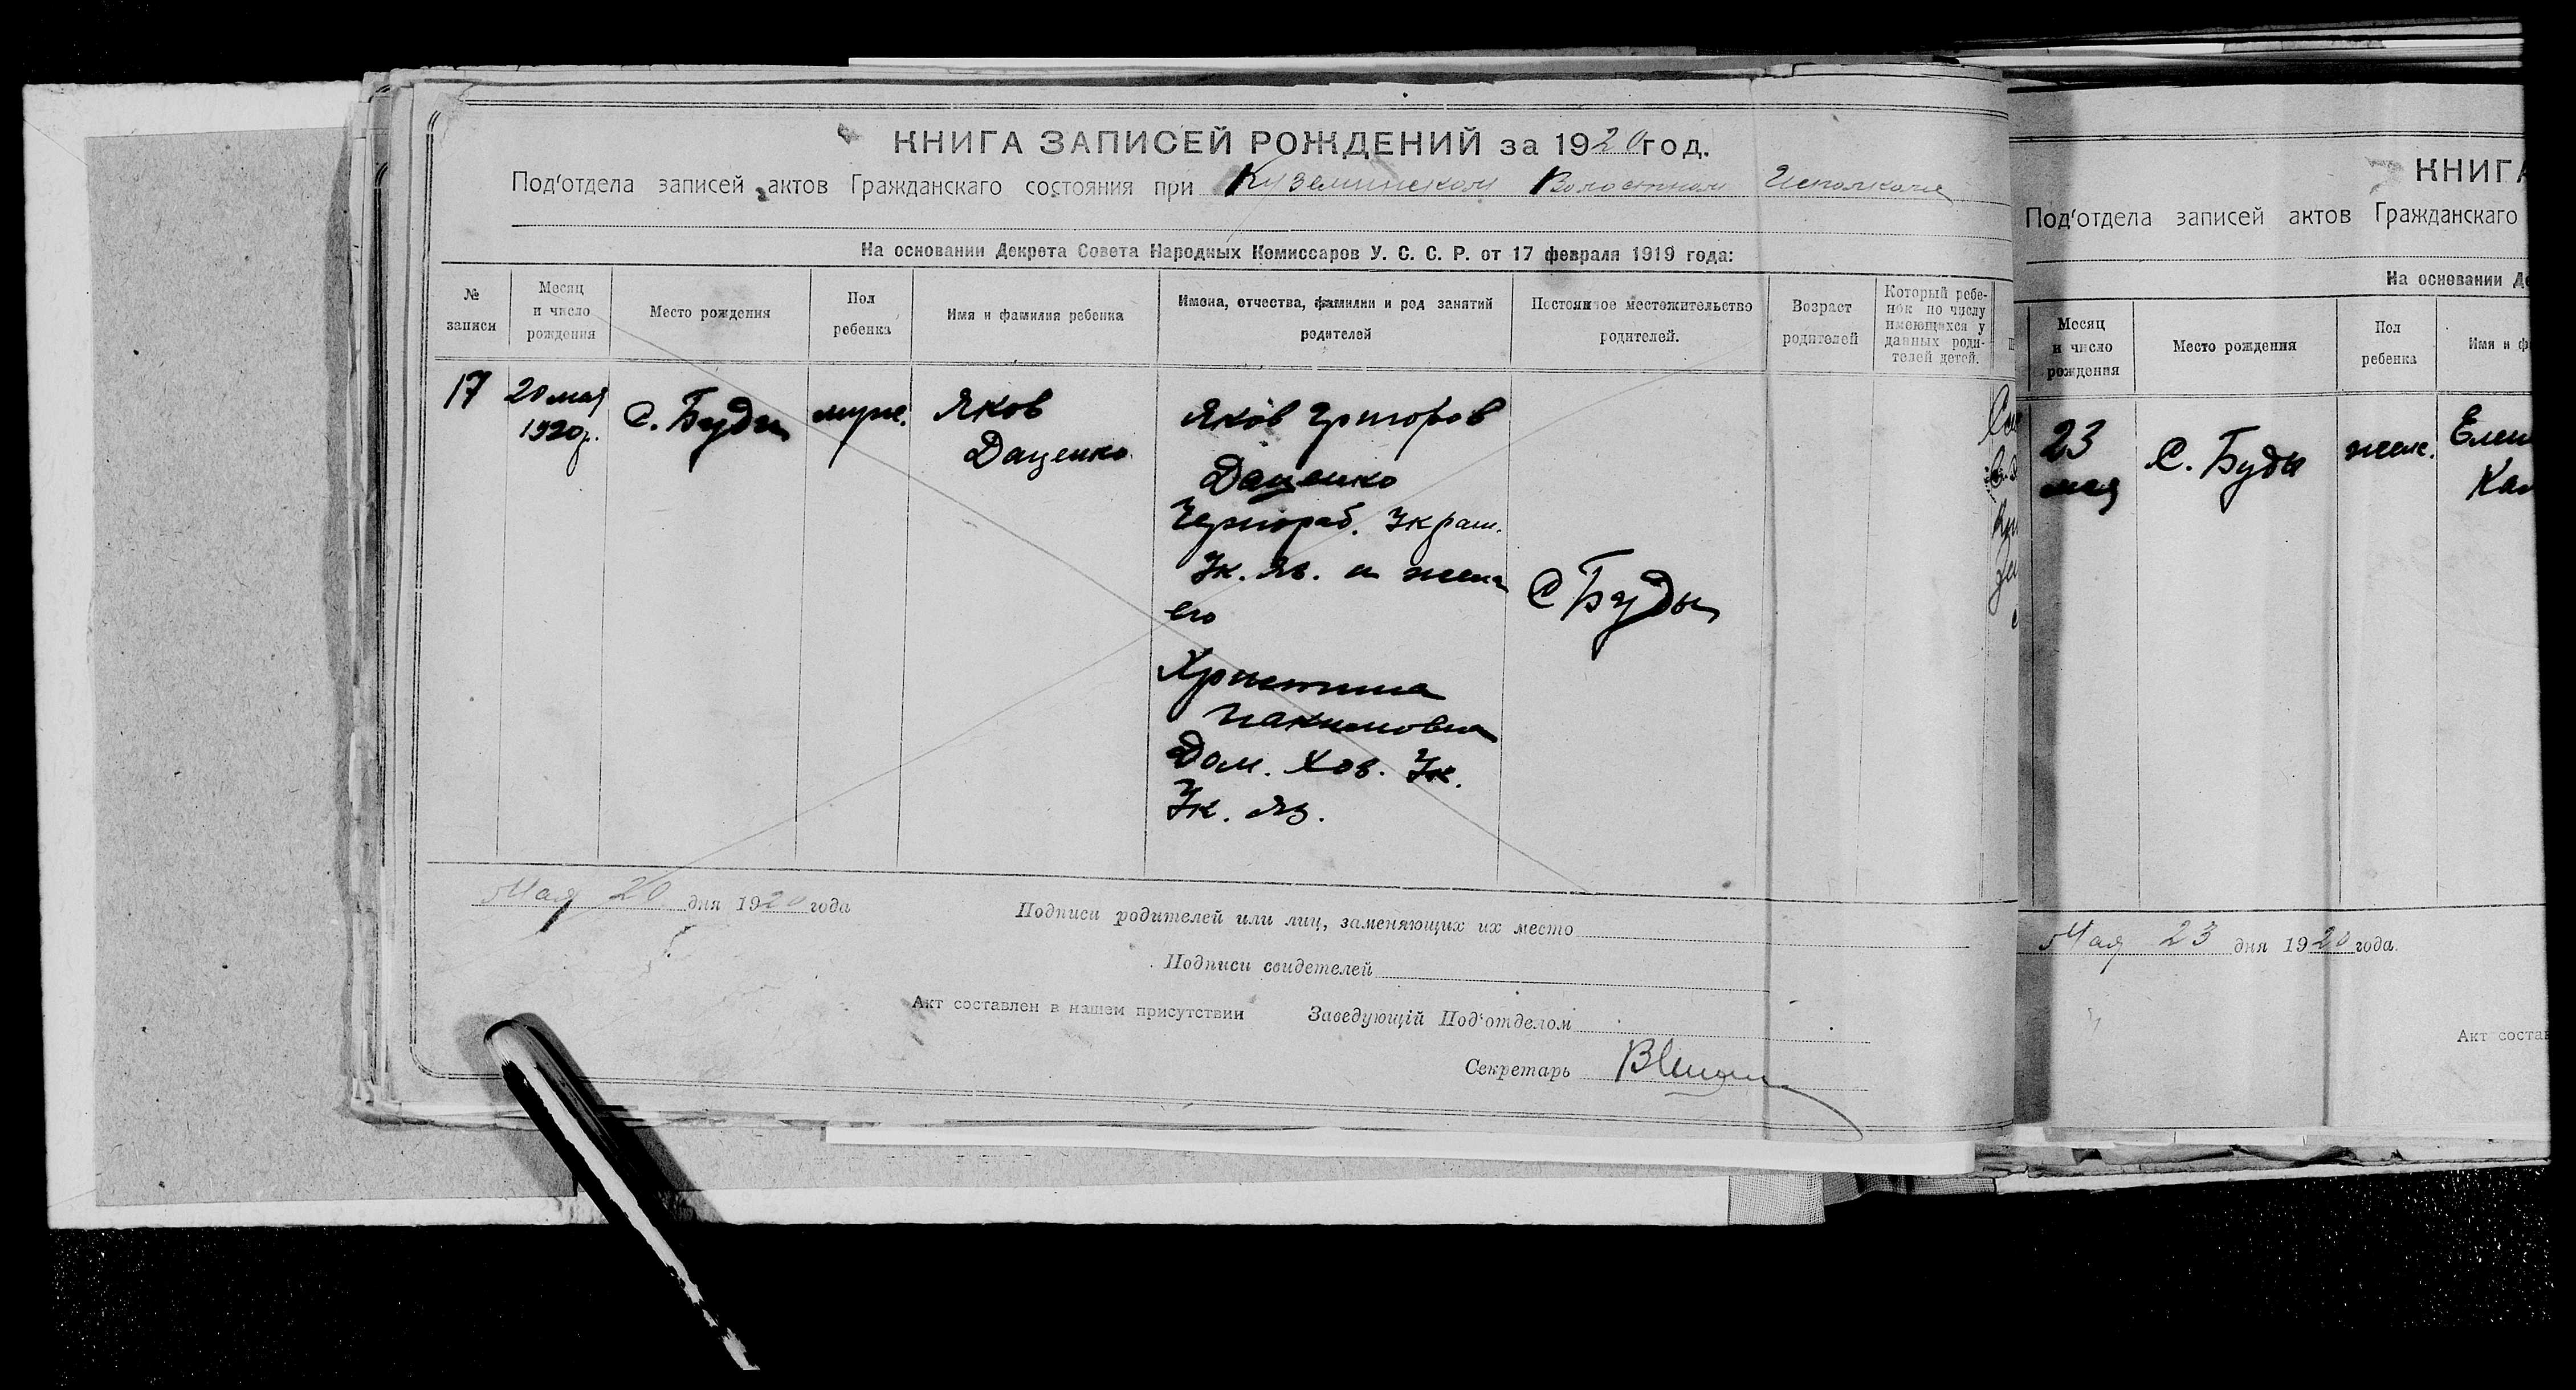 КНИГА ЗАПИСЕЙ РОЖДЕНИЙ за 1920 год.
Под'отдела записей актов Гражданскаго состояния при Куземинском Волостном Исполкоме
На основании Декрета Совета Народных Комиссаров У. С. С. Р. от 17 февраля 1919 года:
№
записи
Месяц
и число
рождения
Место рождения
Пол
ребенка
Имя и фамилия ребенка
Имена, отчества, фамилии и род занятий
родителей
Постоянное местожительство
родителей.
Возраст
родителей
Который ребе-
нок по числу
имеющихся у
данных роди-
телей детей.
17
20 мая
1920 г.
с. Буды
муж.
Яков
Даценко
Яков Григоров
Даценко
Чернораб. Украин.
Ук. яз. и жена
его
Христина
Иакимовна
Дом. Хоз. Ук.
Ук. яз.
С Буды
Мая 20 дня 1920 года
Подписи родителей или лиц, заменяющих их место
Подписи свидетелей
Акт составлен в нашем присутствии Заведующій Под'отделом
Секретарь
КНИГА
Под'отдела записей актов Гражданскаго
На основании Де
Месяц
и число
рождения
Место рождения
Пол
ребенка
Имя и ф
23
мая
С. Буды
жен.
Елен
Кал
Мая 23 дня 1920 года.
Акт состав